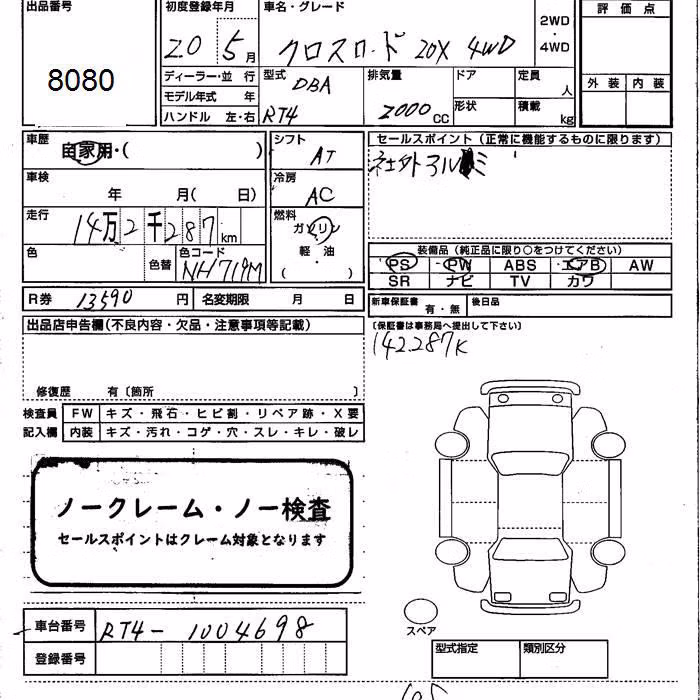 出品番号 初度登録年月 車名・グレード 評価点
8080 20 5月 クロスロード 20X 4WD 2WD・4WD
ディーラー・並行 型式 DBA 排気量 ドア 定員 人 外装 内装
モデル年式 年
ハンドル 左・右 RT4 2000cc 形状 積載 kg
車歴 自家用・( ) シフト AT セールスポイント(正常に機能するものに限ります)
車検 年 月( 日) 冷房 AC 社外アルミ
走行 14万2千287km 燃料 ガソリン
色 色替 色コード NH719M 軽・油・( ) 装備品(純正品に限り○をつけてください)
PS PW ABS エアB AW
SR ナビ TV カワ
R券 13590円 名変期限 月 日 新車保証書 有・無 後日品
出品店申告欄(不良内容・欠品・注意事項等記載) (保証書は事務局へ提出して下さい)
142.287K
修復歴 有〔箇所 〕
検査員 FW キズ・飛石・ヒビ割・リペア跡・X要
記入欄 内装 キズ・汚れ・コゲ・穴・スレ・キレ・破レ
ノークレーム・ノー検査
セールスポイントはクレーム対象となります
車台番号 RT4-1004698 スペア
登録番号 型式指定 類別区分